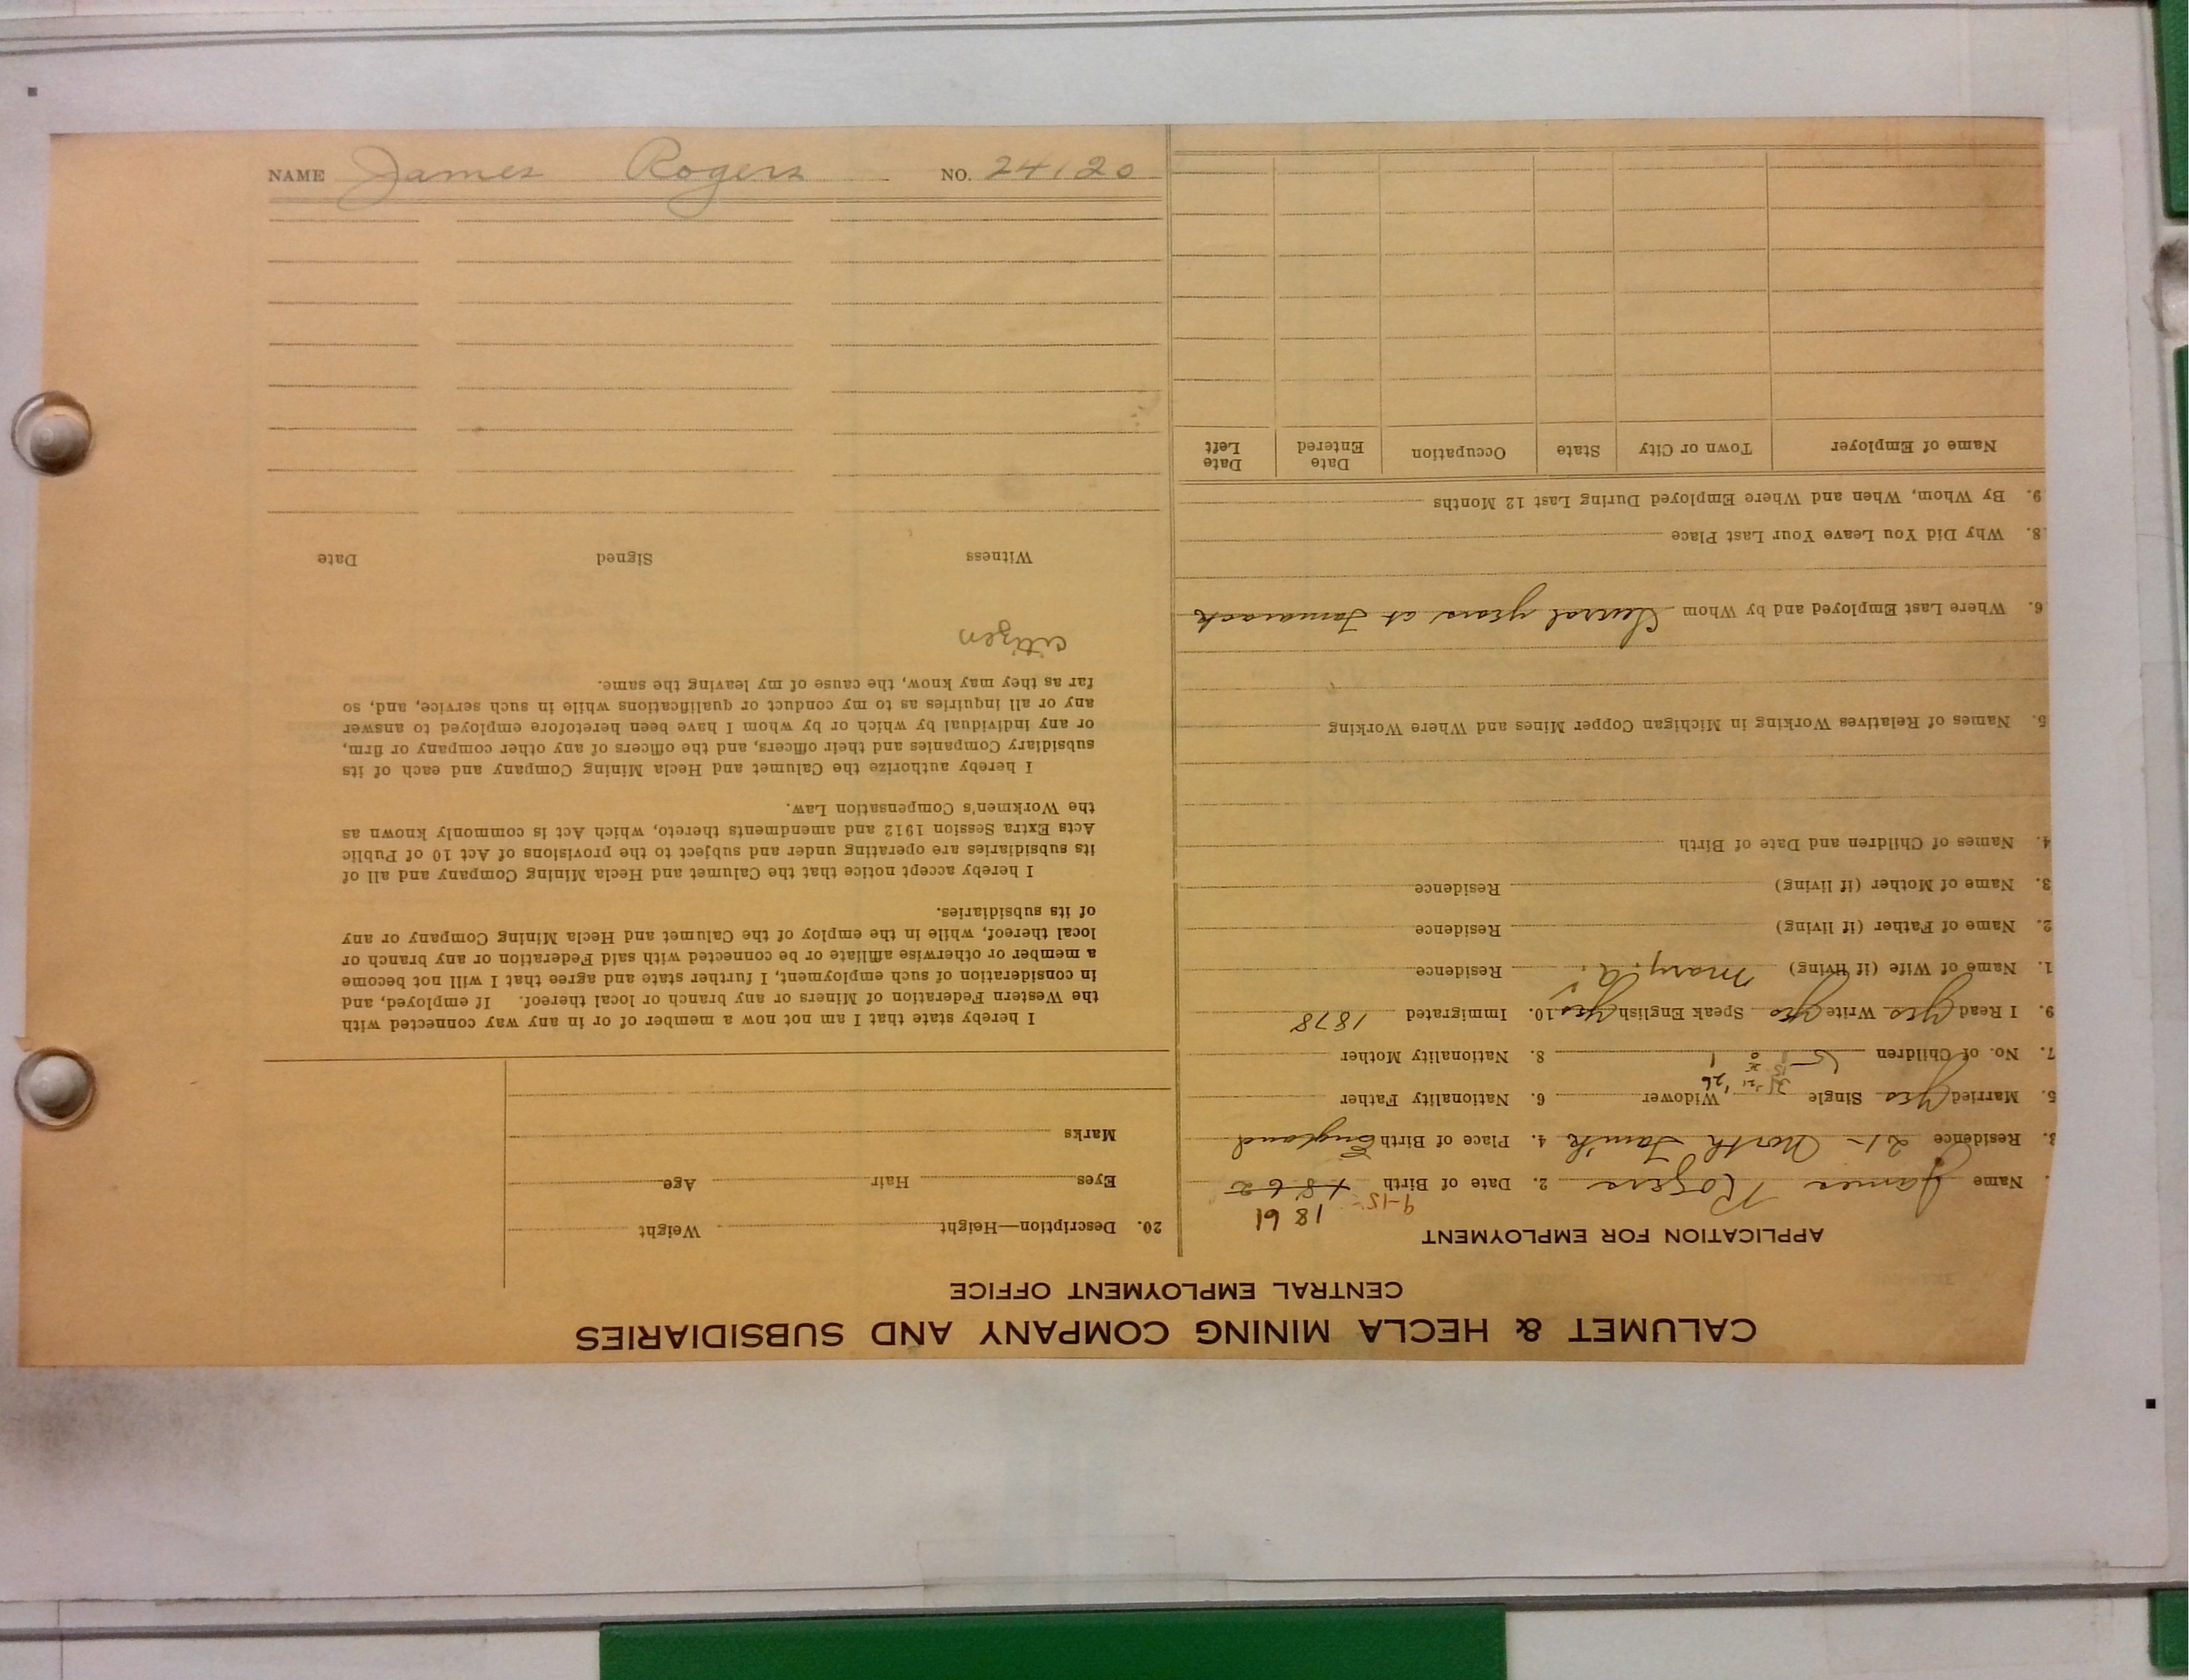 CALUMET & HECLA MINING COMPANY AND SUBSIDIARIES
CENTRAL EMPLOYMENT OFFICE
APPLICATION FOR EMPLOYMENT
1861
9-15-
. Name James Rogers 2. Date of Birth 1862
3. Residence 21- North Tam'k 4. Place of Birth England
5. Married yes Single Widower 6. Nationality Father
'26
7. No. of Children 5 1 8. Nationality Mother
9. I Read yes Write yes Speak English yes 10. Immigrated 1878
1. Name of Wife (if living) Mary A. Residence
2. Name of Father (if living) Residence
3. Name of Mother (if living) Residence
4. Names of Children and Date of Birth
5. Names of Relatives Working in Michigan Copper Mines and Where Working
6. Where Last Employed and by Whom Several years at Tamarack
8. Why Did You Leave Your Last Place
9. By Whom, When and Where Employed During Last 12 Months
Name of Employer Town or City State Occupation Date Entered Date Left
20. Description—Height Weight
Eyes Hair Age
Marks
I hereby state that I am not now a member of or in any way connected with
the Western Federation of Miners or any branch or local thereof. If employed, and
in consideration of such employment, I further state and agree that I will not become
a member or otherwise affiliate or be connected with said Federation or any branch or
local thereof, while in the employ of the Calumet and Hecla Mining Company or any
of its subsidiaries.
I hereby accept notice that the Calumet and Hecla Mining Company and all of
its subsidiaries are operating under and subject to the provisions of Act 10 of Public
Acts Extra Session 1912 and amendments thereto, which Act is commonly known as
the Workmen's Compensation Law.
I hereby authorize the Calumet and Hecla Mining Company and each of its
subsidiary Companies and their officers, and the officers of any other company or firm,
or any individual by which or by whom I have been heretofore employed to answer
any or all inquiries as to my conduct or qualifications while in such service, and, so
far as they may know, the cause of my leaving the same.
citizen
Witness Signed Date
NAME James Rogers NO. 24120